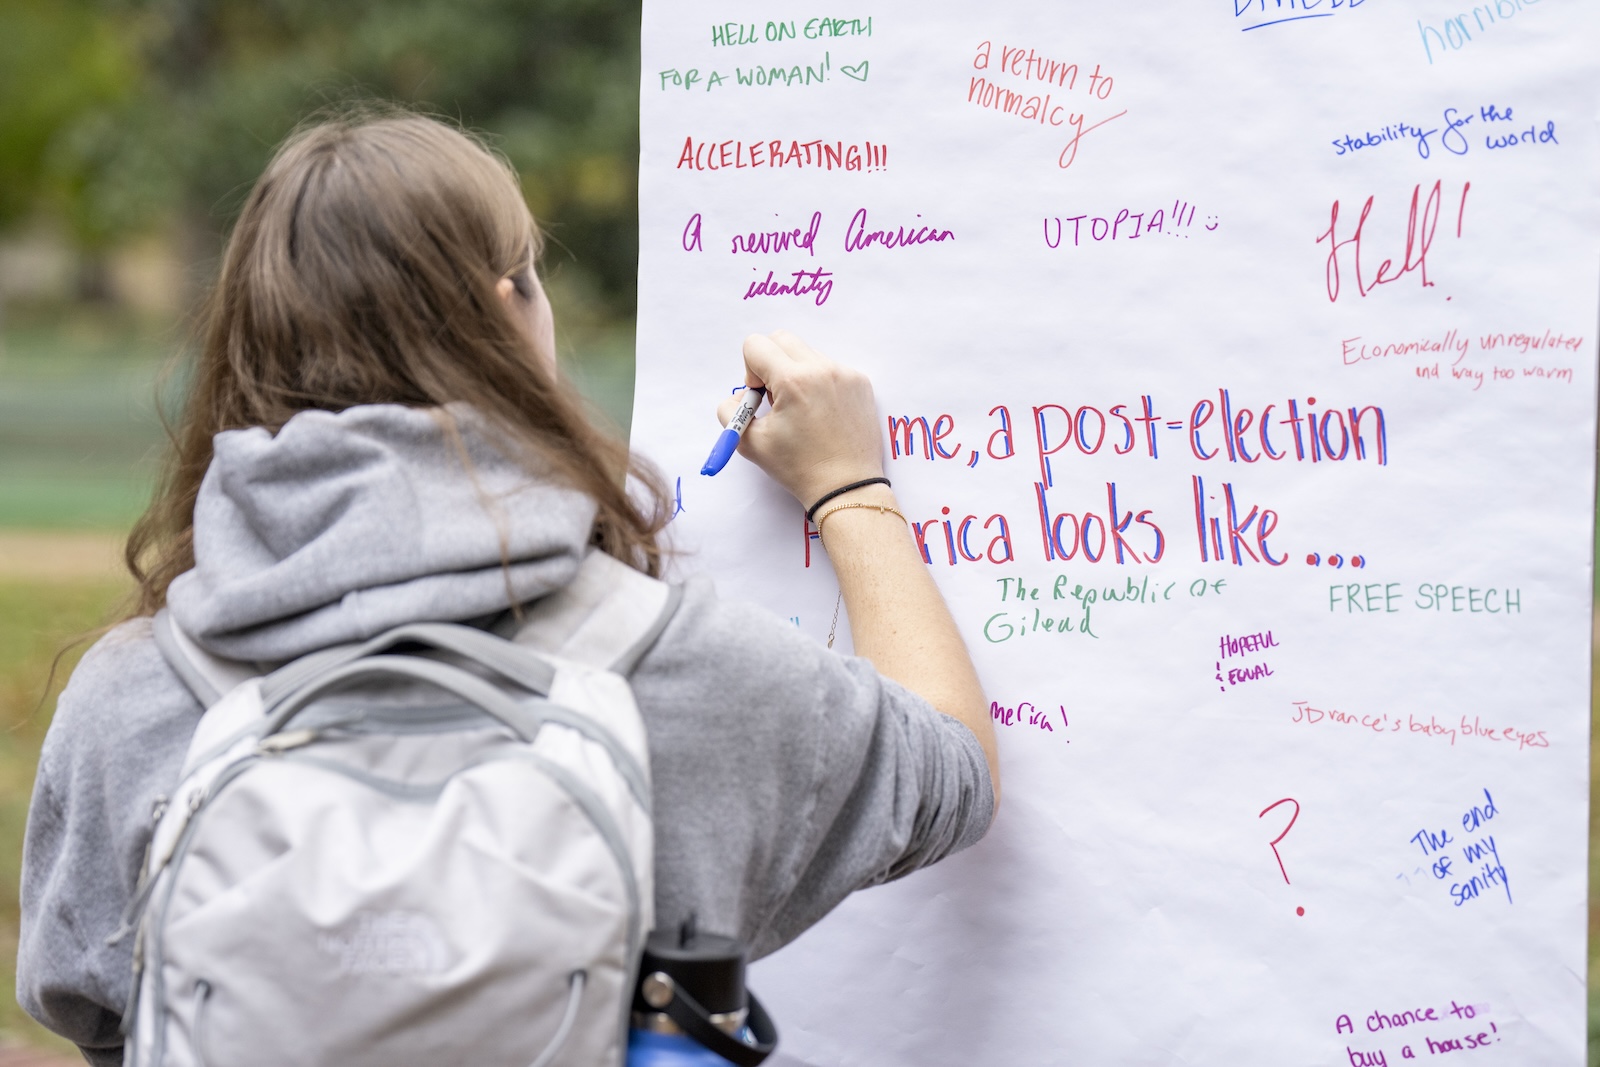 HELL ON EARTH
FOR A WOMAN! ♡
a return to
normalcy
horrible
stability for the
world
ACCELERATING!!!
A revived American
identity
UTOPIA!!!
Hell!
Economically unregulated
and way too warm
me, a post-election
rica looks like...
The Republic of
Gilead
FREE SPEECH
HOPEFUL
& EQUAL
merica!
JD vance's baby blue eyes
?
The end
of my
sanity
A chance to
buy a house!
Sharpie